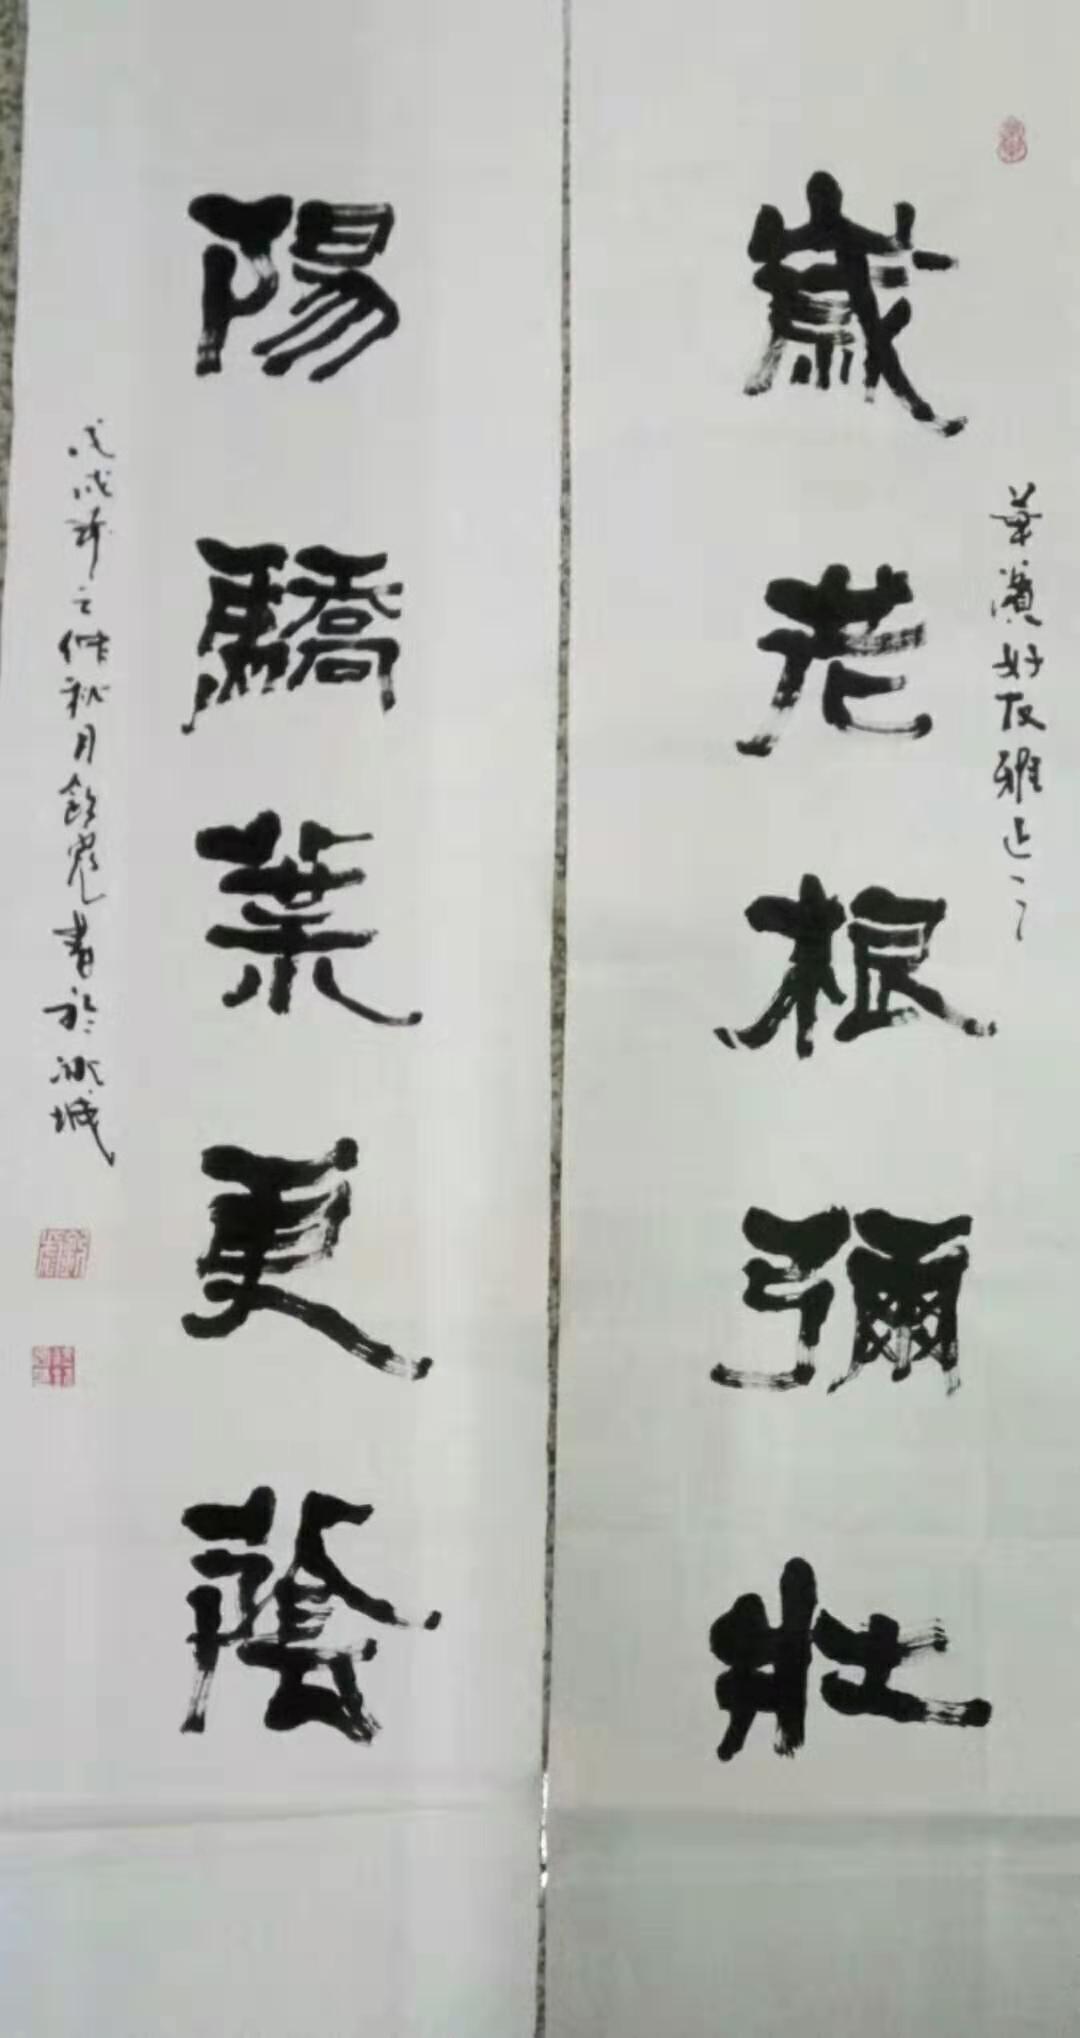 歲老根彌壯
葉濱好友雅正
陽驕葉更蔭
戊戌年之仲秋月 書於冰城